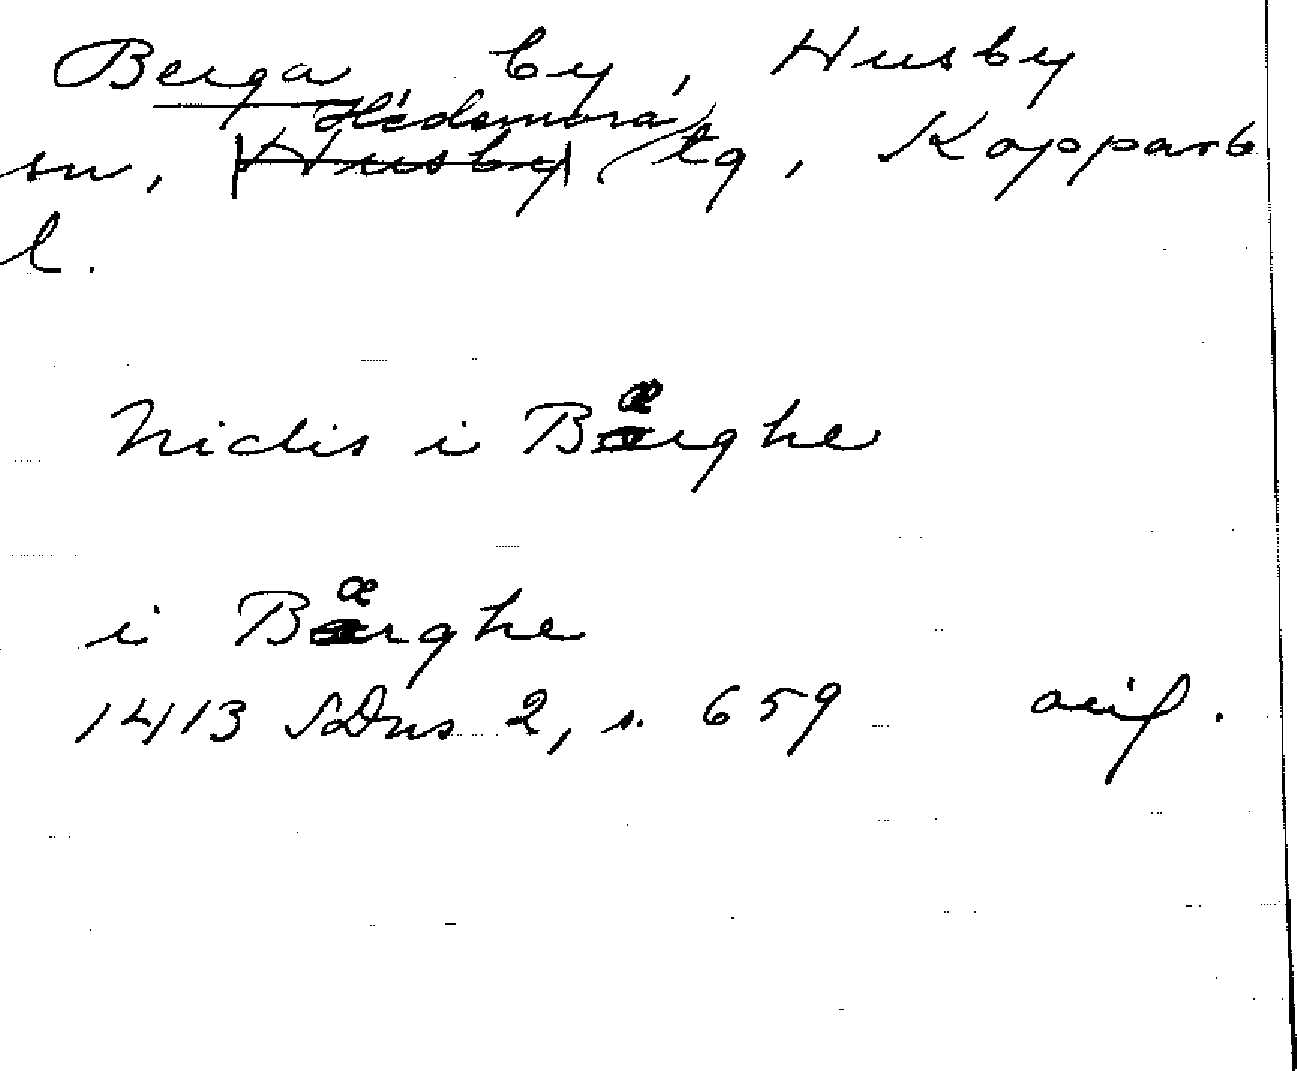 Berga by, Husby
sn, Hedemora tg, Kopparb
l.
Nidis i Bærghe
i Bærghe
1413 SDns 2, s. 659